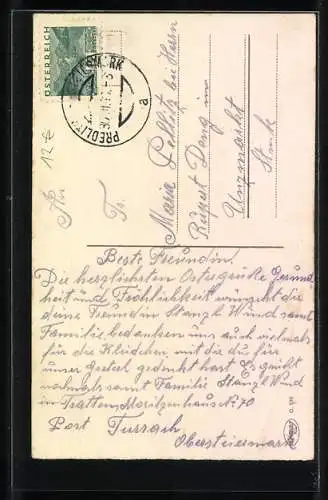 ÖSTERREICH
STEIERMARK
PREDLITZ
a
12 €
Fr.
Maria Pollitz bei Herrn
August Dong in
Unzmarkt
Stmk
Beste Freundin.
Die herzlichsten Ostergrüße Gesund
heit und Fröhlichkeit wünscht die
deine Freundin Stanzl Wind samt
Familie bedanken uns auch vielmals
für die Kleidchen mit die du für
unser gedenkt hast Es grüßt
nochmals samt Familie Stanzl Wind
in Tratten, Moritzenhaus No 70
Post Turrach
Obersteiermark